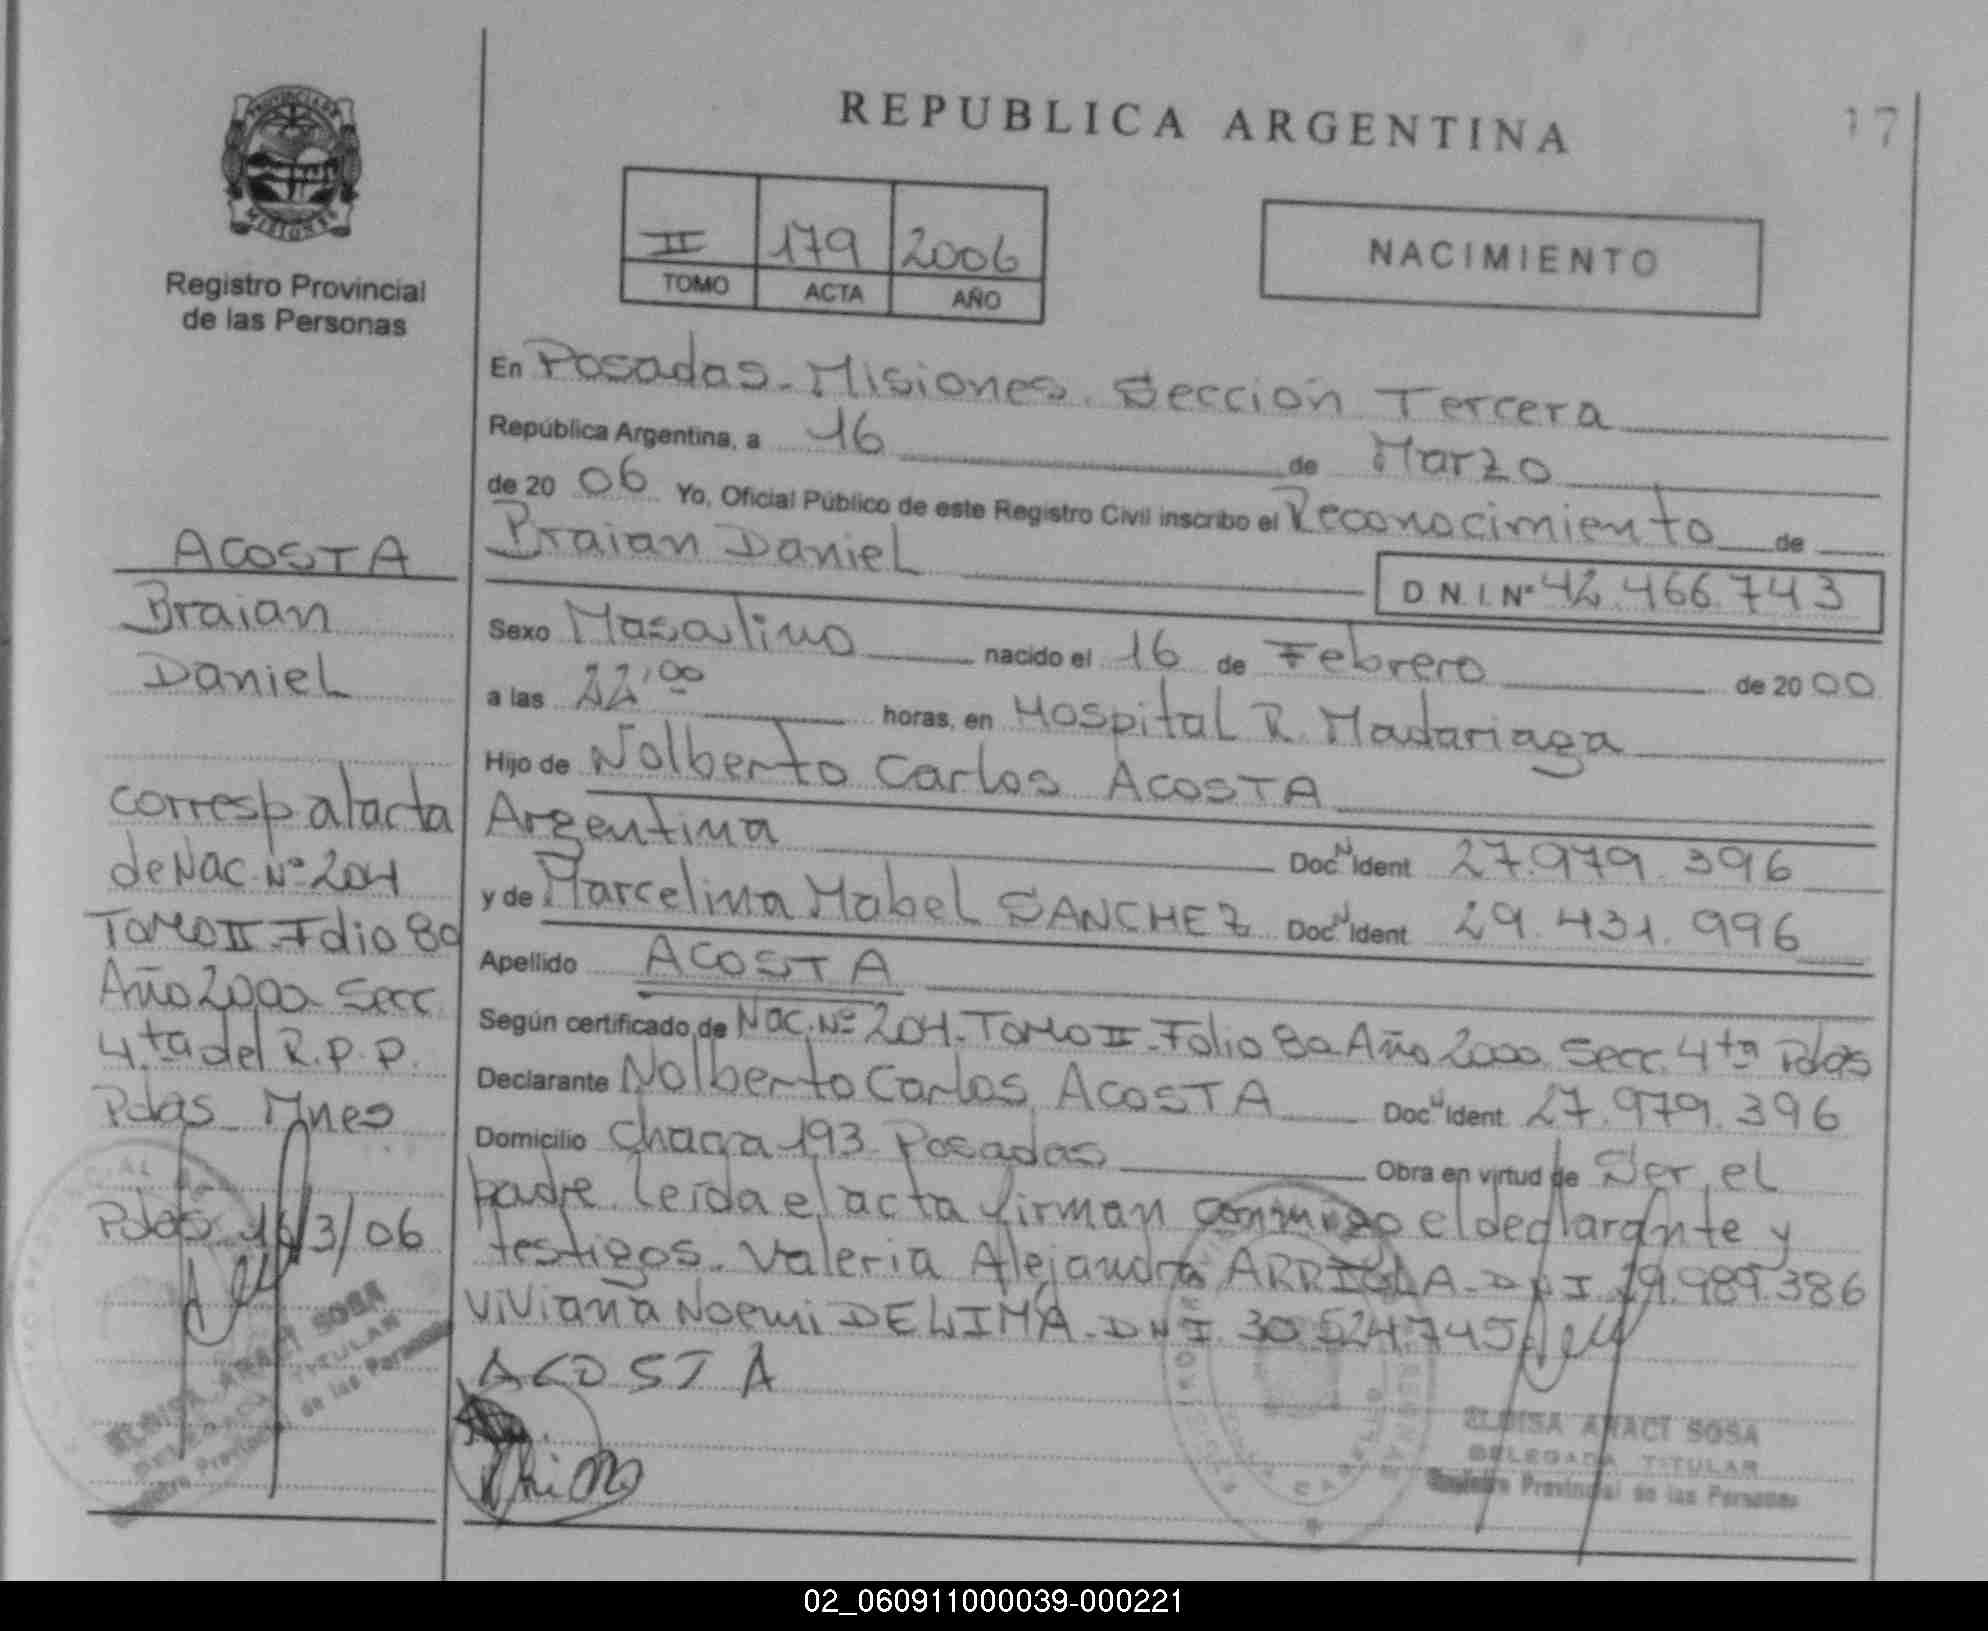 REPUBLICA ARGENTINA
17
PROVINCIA DE
MISIONES
Registro Provincial
de las Personas
II 179 2006
TOMO ACTA AÑO
NACIMIENTO
En Posadas - Misiones. Sección Tercera
República Argentina, a 16 de Marzo
de 20 06 Yo, Oficial Público de este Registro Civil inscribo el Reconocimiento de
Braian Daniel
D N.I.Nº 42.466.743
Sexo Masculino nacido el 16 de Febrero de 20 00
a las 22,00 horas, en Hospital R. Madariaga
Hijo de Nolberto Carlos ACOSTA
Argentina Doc. Ident 27.979.396
y de Marcelina Mabel SANCHEZ Doc. Ident 29.431.996
Apellido ACOSTA
Según certificado de Nac. Nº 204. Tomo II - Folio 80 Año 2000. Secc. 4ta Pdas
Declarante Nolberto Carlos ACOSTA Doc. Ident 27.979.396
Domicilio Chaca 193 - Posadas Obra en virtud de Ser el
padre. Leída el acta firman conmigo el declarante y
testigos. Valeria Alejandra ARRIOLA - DNI 29.989.386
Viviana Noemi DELIMA - DNI. 30.524.745
ACOSTA
ELOISA ANACI SOSA
DELEGADA TITULAR
Registro Provincial de las Personas
ACOSTA
Braian
Daniel
corresp al acta
de Nac. Nº 204
Tomo II - Folio 80
Año 2000 - Secc.
4.ta del R.P.P.
Pdas - Mnes
Pdas 16/3/06
ELOISA ANACI SOSA
DELEGADA TITULAR
Registro Provincial de las Personas
02_060911000039-000221